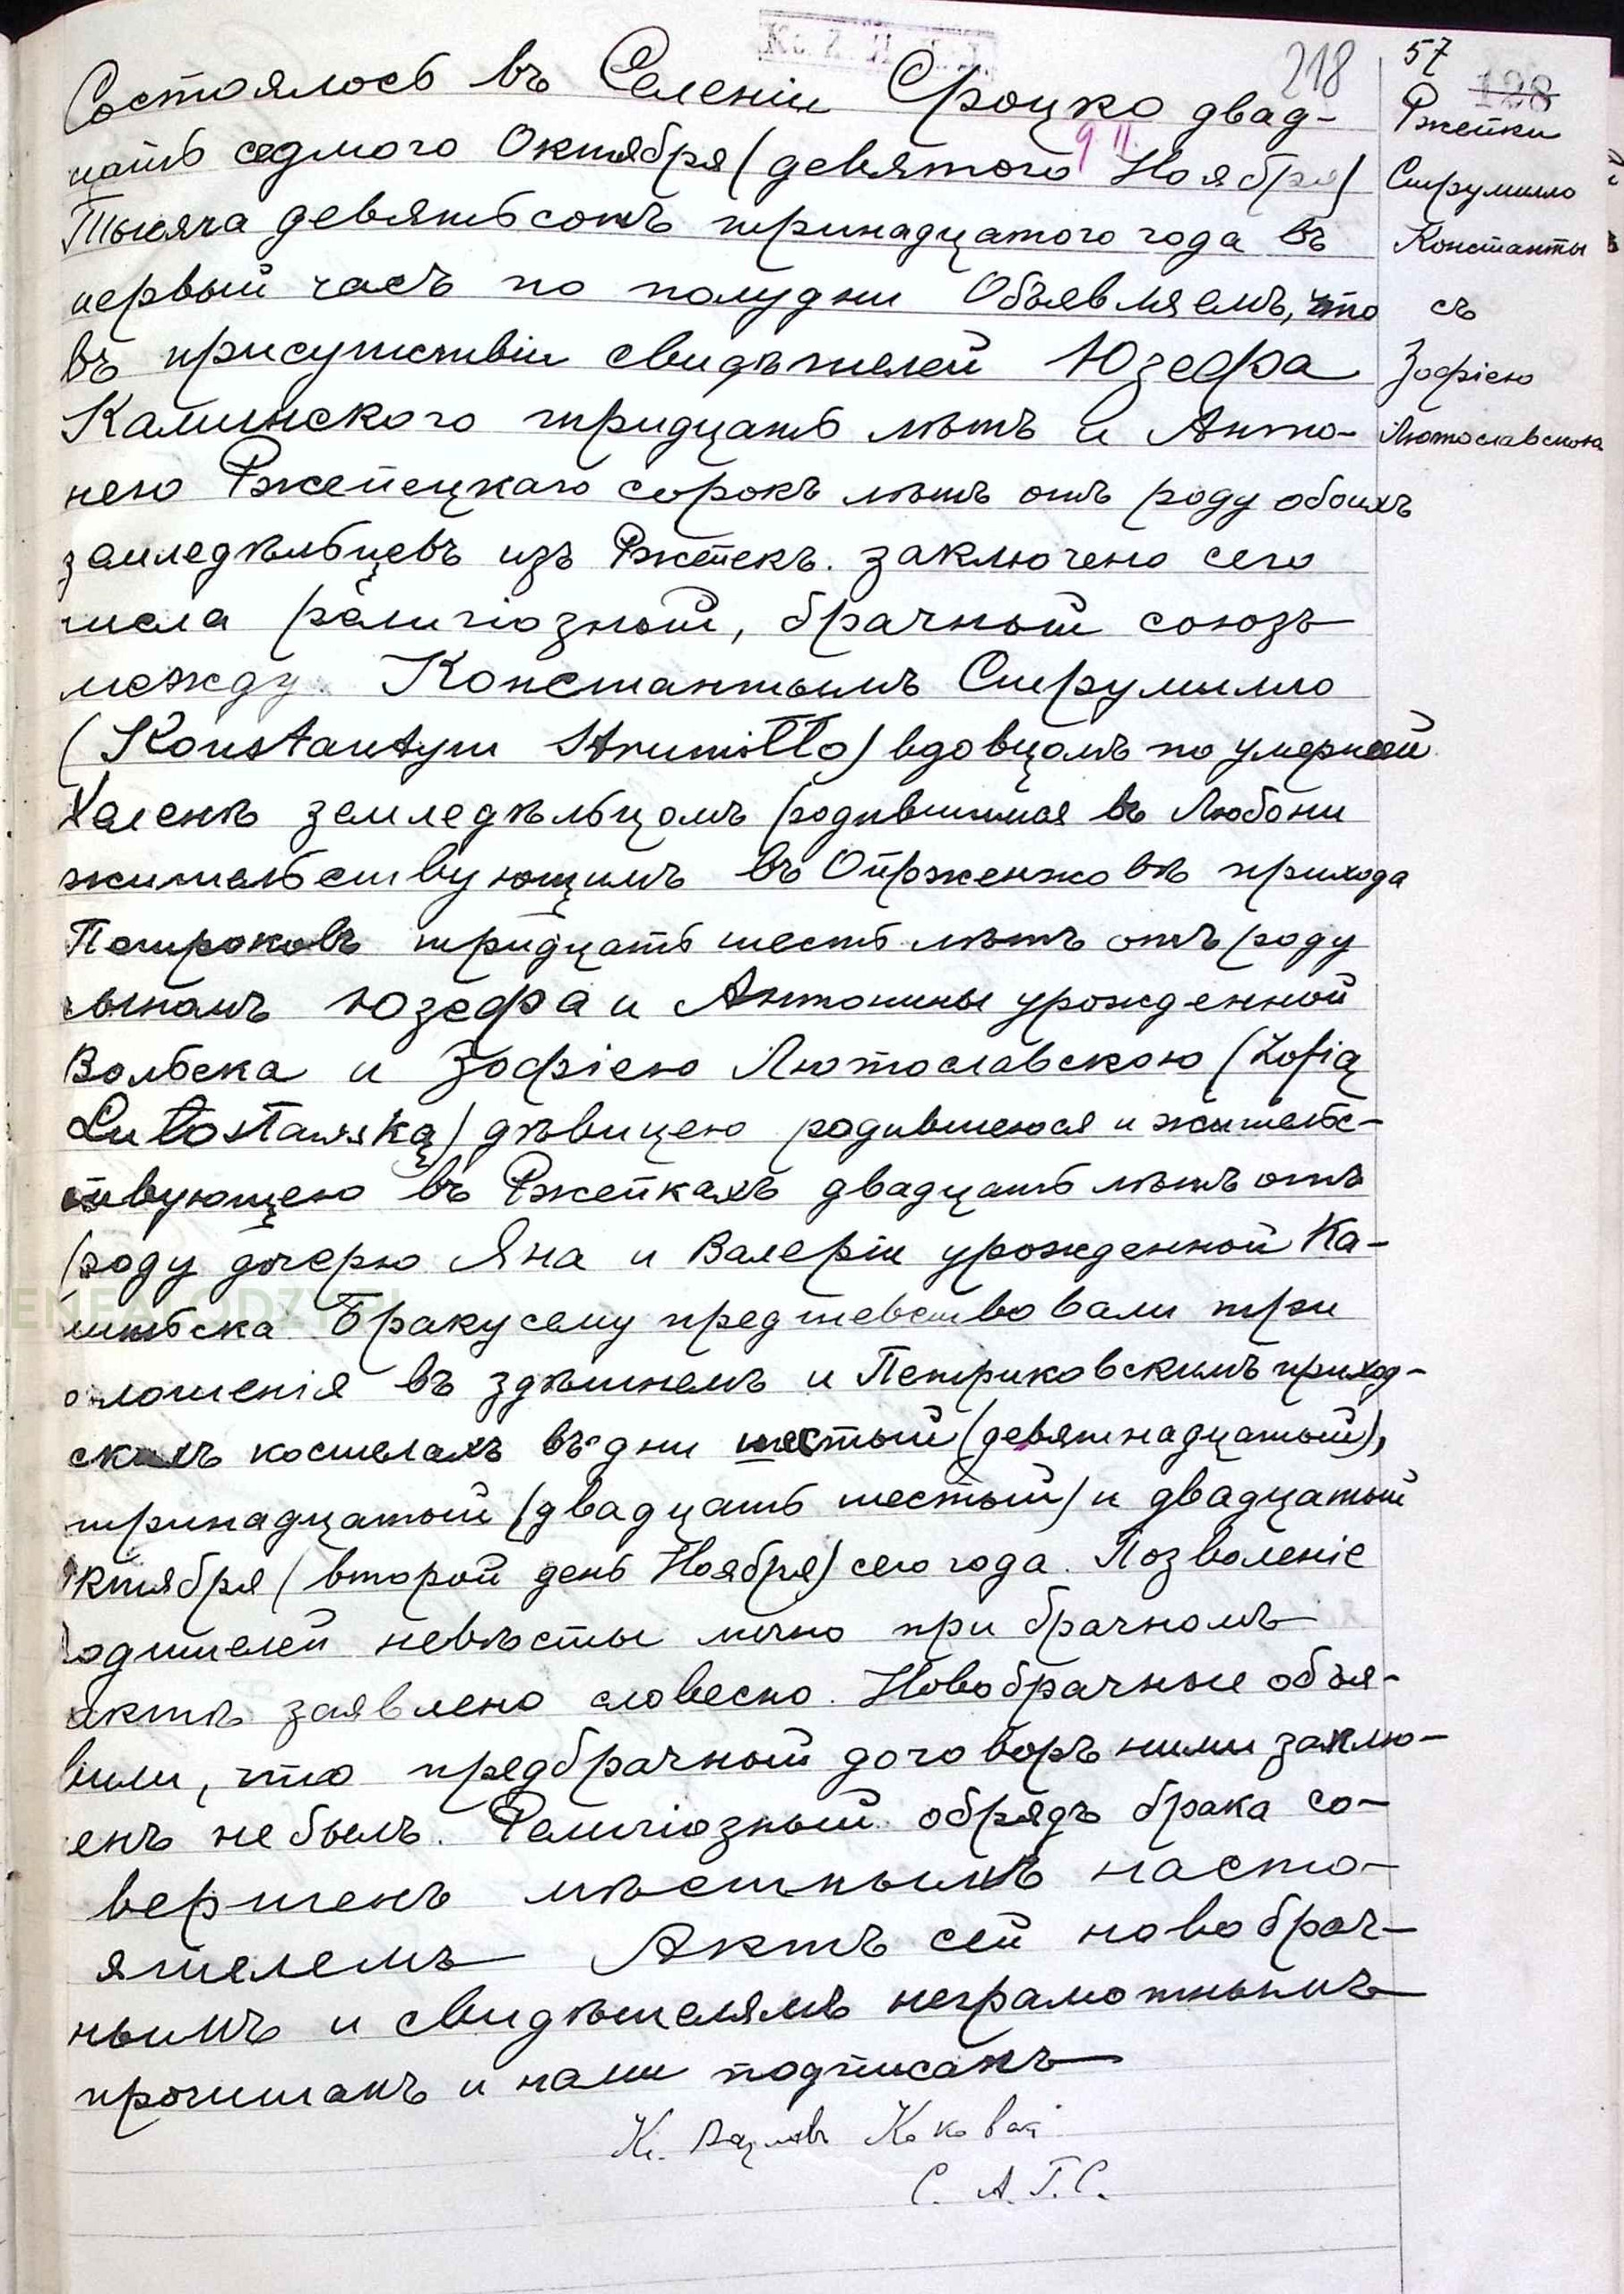 218
57
128
Рженки
Струмилло
Константы
съ
Зофіею
Лютославскою
Состоялось въ Селеніи Сроцко двад-
цать седмого Октября (девятого Ноября)
9 11.
Тысяча девятьсотъ тринадцатого года въ
первый часъ по полудни Объявляемъ, что
въ присутствіи свидѣтелей Юзефа
Калинского тридцать лѣтъ и Анто-
нею Ржепецкаго сорокъ лѣтъ отъ роду обоихъ
земледѣльцевъ изъ Ржепекъ. заключено сего
числа религіозный, брачный союзъ
между Константымъ Струмилло
(Konstantym Strumiłło) вдовцомъ по умершей
земледѣльцомъ родившимся въ Любони
жительствующимъ въ Опрженжовѣ прихода
Петроковъ тридцать шесть лѣтъ отъ роду
сыномъ Юзефа и Антонины урожденной
Вольска и Зофіею Лютославскою (Zofią
Lutosławską) дѣвицею родившеюся и жительс-
твующею въ Ржепкахъ двадцать лѣтъ отъ
роду дочерю Яна и Валеріи урожденной Ка-
линьска Браку сему предшевствовали три
оглошенія въ здѣшнемъ и Петриковскимъ приход-
скихъ костелахъ въ дни шестый (девятнадцатый),
тринадцатый (двадцать шестый) и двадцатый
Октября (второй день Ноября) сего года. Позволеніе
родителей невѣсты лично при брачномъ
актѣ заявлено словесно. Новобрачные объя-
вили, что предбрачный договоръ ними заклю-
енъ не былъ. Религіозный обрядъ брака со-
вершенъ мѣстнымъ насто-
ятелемъ Актъ сей новобрач-
нымъ и свидѣтелямъ неграмотнымъ
прочитанъ и нами подписанъ
Кс. Вацлавъ
С. А. Г. С.